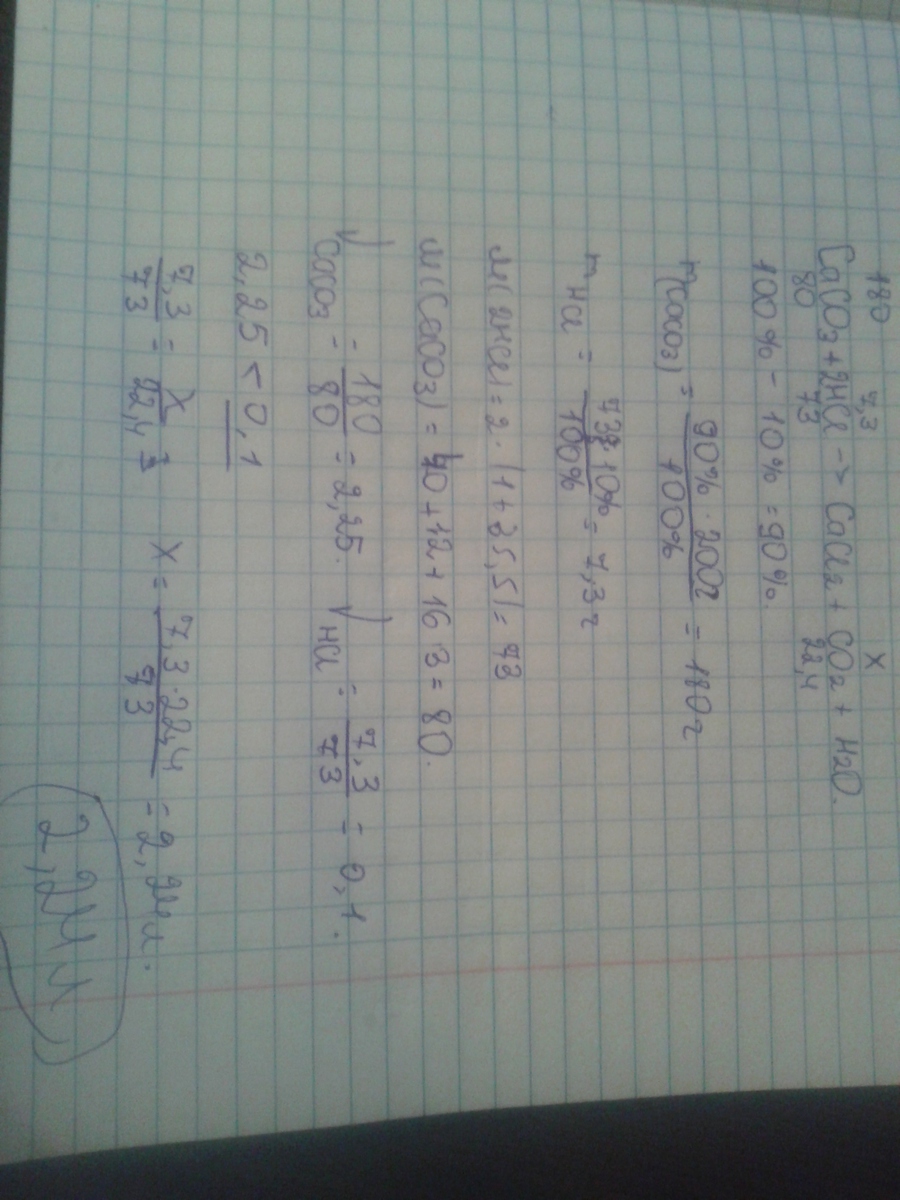 180 7,3 x
CaCO3 + 2HCl -> CaCl2 + CO2 + H2O.
80 73 22,4
100% - 10% = 90%.
m(CaCO3) = 90% · 200г / 100% = 180г
m HCl = 73г·10% / 100% = 7,3г
M(2HCl) = 2·(1+35,5) = 73
M(CaCO3) = 40+12+16·3 = 80.
√CaCO3 = 180 / 80 = 2,25. √HCl = 7,3 / 73 = 0,1.
2,25 < 0,1
7,3 / 73 = x / 22,4 x = 7,3·22,4 / 73 = 2,24л.
2,24л